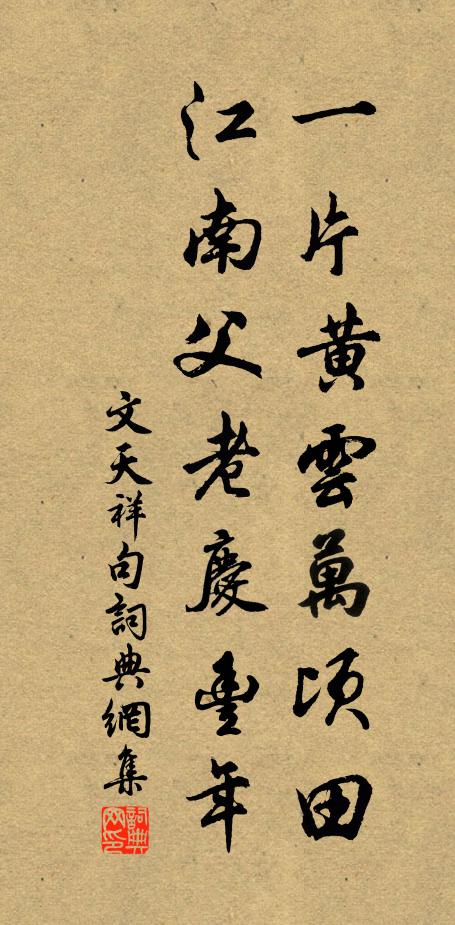 一片黃雲萬頃田
江南父老慶豐年
文天祥句詞典網集
詞典网印